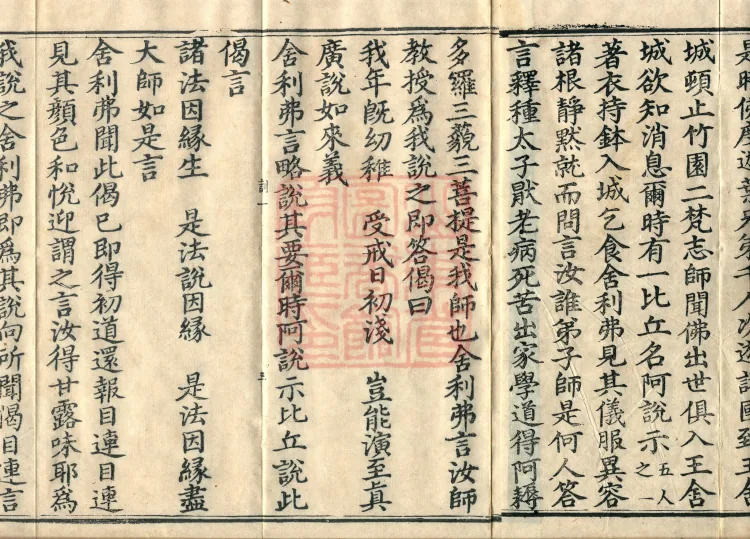 是時佛度迦葉兄弟千人次遊諸國至王舍
城頓止竹園二梵志師聞佛出世俱入王舍
城欲知消息爾時有一比丘名阿說示五人之一
著衣持鉢入城乞食舍利弗見其儀服異容
諸根靜默就而問言汝誰弟子師是何人答
言釋種太子猒老病死苦出家學道得阿耨
多羅三藐三菩提是我師也舍利弗言汝師
教授爲我說之即答偈曰
我年旣幼稚　受戒日初淺　豈能演至眞
廣說如來義
舍利弗言略說其要爾時阿說示比丘說此
偈言
諸法因緣生　是法說因緣　是法因緣盡
大師如是言
舍利弗聞此偈已即得初道還報目連目連
見其顏色和悅迎謂之言汝得甘露味耶爲
我說之舍利弗即爲其說向所聞偈目連言